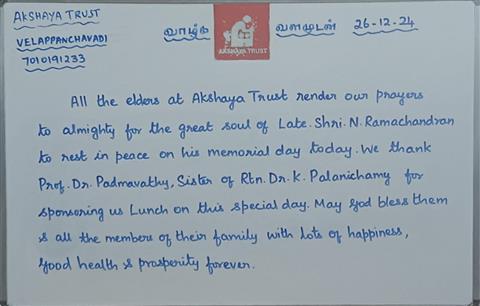 AKSHAYA TRUST
VELAPPANCHAVADI
7010191233
வாழ்க வளமுடன் 26-12-24
AKSHAYA TRUST
All the elders at Akshaya Trust render our prayers
to almighty for the great soul of Late. Shri. N. Ramachandran
to rest in peace on his memorial day today. We thank
Prof. Dr. Padmavathy, Sister of Rtn. Dr. K. Palanichamy for
sponsoring us Lunch on this special day. May god bless them
& all the members of their family with lots of happiness,
good health & prosperity forever.